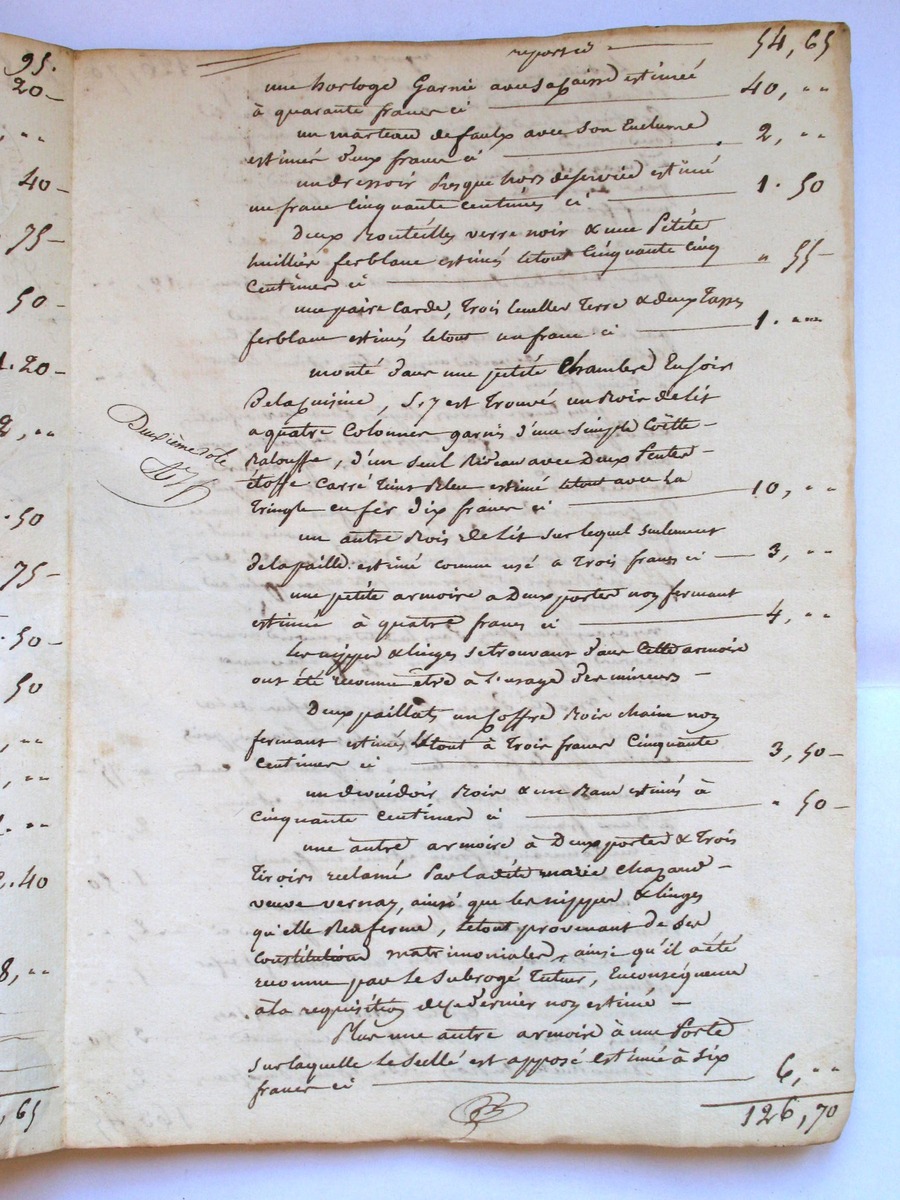 95.
20 —
40 —
75 —
50 —
1.20 —
2, ,,
.50
75 —
.50 —
50
2.40
8, ,,
, 65
reporté — 54, 65
une horloge Garnie avec sa caisse estimée
à quarante francs ci — 40, ,,
un marteau de faulx avec Son Enclume
estimés deux francs ci — 2, ,,
un dressoir presque hors de service estimé
un franc Cinquante centimes ci — 1 . 50
Deux Bouteilles verre noir & une Petite
huillier ferblanc estimés letout Cinquante Cinq
Centimes ci — ,, 55 —
une paire Carde, Trois Ecuelles Terre & deux Tasses
ferblanc estimés letout un franc ci — 1 . ,,
monté dans une petite Chambre En soir
De la Cuisine, S'y est Trouvé un Bois de lit
a quatre Colonnes garnis d'une simple Coëtte —
Balouffe, d'un seul Rideau avec Deux Pentes —
étoffe Carré Teint Bleu estimé letout avec la
Tringle en fer dix francs ci — 10, ,,
Deuxième Rôle
un autre Bois de lit sur lequel seulement
de la paille estimé comme usé a Trois francs ci — 3, ,,
une petite armoire a Deux portes non fermant
estimée à quatre francs ci — 4, ,,
Les nippes & linges se trouvant dans Cette armoire
ont été reconnu être à l'usage des mineurs —
Deux paillats un Coffre Bois chaine non
fermant estimés letout à Trois francs Cinquante
Centimes ci — 3, 50 —
un devuidoir Bois & un Banc estimés à
Cinquante Centimes ci — ,, 50 —
une autre armoire à Deux portes & Trois
Tiroirs reclamé Par ladite marie Chazaud —
veuve vernay, ainsi que les nippes & linges
qu'elle Renferme, letout provenant de Ses
Constitutions matrimoniales, ainsi qu'il a été
reconnu par le Subrogé Tuteur, En conséquence
à la requisition de ce dernier non estimé —
Plus une autre armoire à une Porte
sur laquelle le scellé est apposé Estimée à Six
francs ci — 6, ,,
126, 70